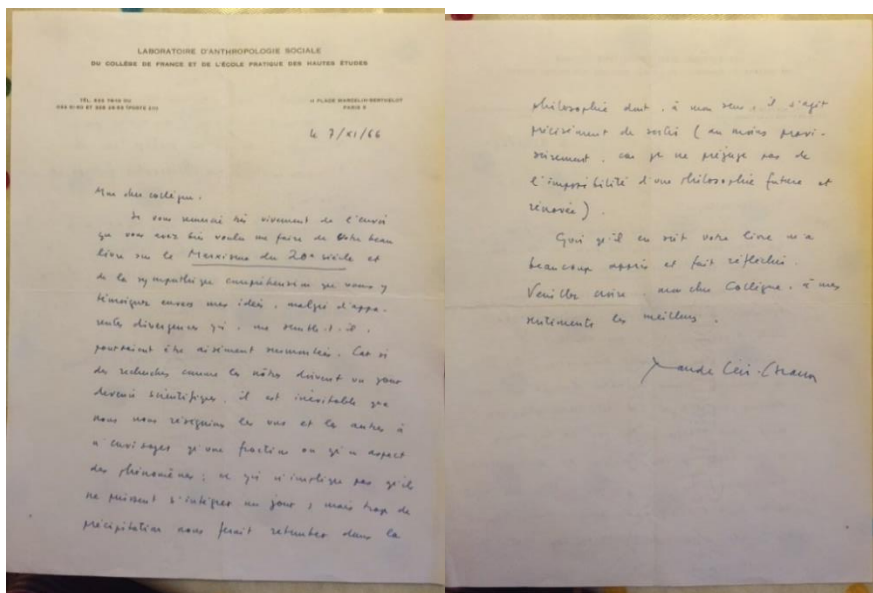 LABORATOIRE D'ANTHROPOLOGIE SOCIALE
DU COLLÈGE DE FRANCE ET DE L'ÉCOLE PRATIQUE DES HAUTES ÉTUDES
TÉL.
11 PLACE MARCELIN-BERTHELOT
PARIS 5
le 7/XI/66
Mon cher collègue,
Je vous remercie très vivement de l'envoi
que vous avez bien voulu me faire de votre beau
livre sur le Marxisme du 20e siècle et
de la sympathique compréhension que vous y
témoignez envers mes idées, malgré d'appa-
rentes divergences qui, me semble-t-il,
pourraient être aisément surmontées. Car si
des recherches comme les nôtres doivent un jour
devenir scientifiques, il est inévitable que
nous nous résignions les uns et les autres à
n'envisager qu'une fraction ou qu'un aspect
des phénomènes ; ce qui n'implique pas qu'ils
ne puissent s'intégrer un jour, mais trop de
précipitation nous ferait retomber dans la
philosophie dont, à mon sens, il s'agit
précisément de sortir (au moins provi-
soirement, car je ne préjuge pas de
l'impossibilité d'une philosophie future et
rénovée).
Quoi qu'il en soit votre livre m'a
beaucoup appris et fait réfléchir.
Veuillez croire, mon cher Collègue, à mes
sentiments les meilleurs.
Claude Lévi-Strauss